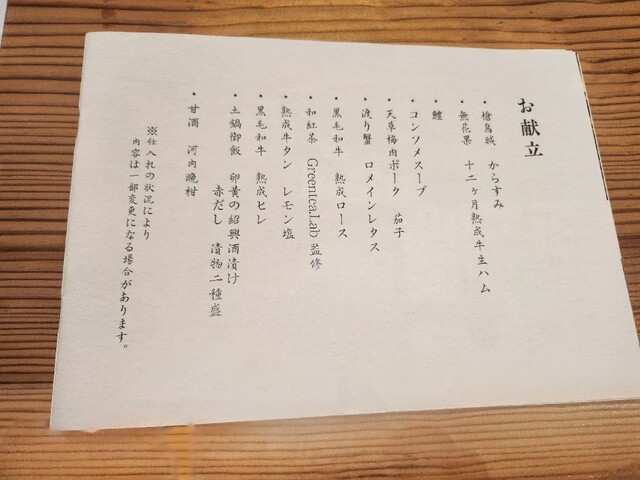 お献立
・槍烏賊　からすみ
・無花果　十二ヶ月熟成牛生ハム
・鱧
・コンソメスープ
・天草梅肉ポータ　茄子
・渡り蟹　ロメインレタス
・黒毛和牛　熟成ロース
・和紅茶　GreenteaLab 監修
・熟成牛タン　レモン塩
・黒毛和牛　熟成ヒレ
・土鍋御飯　卵黄の紹興酒漬け
赤だし　漬物二種盛
・甘酒　河内晩柑
※仕入れの状況により
内容は一部変更になる場合があります。